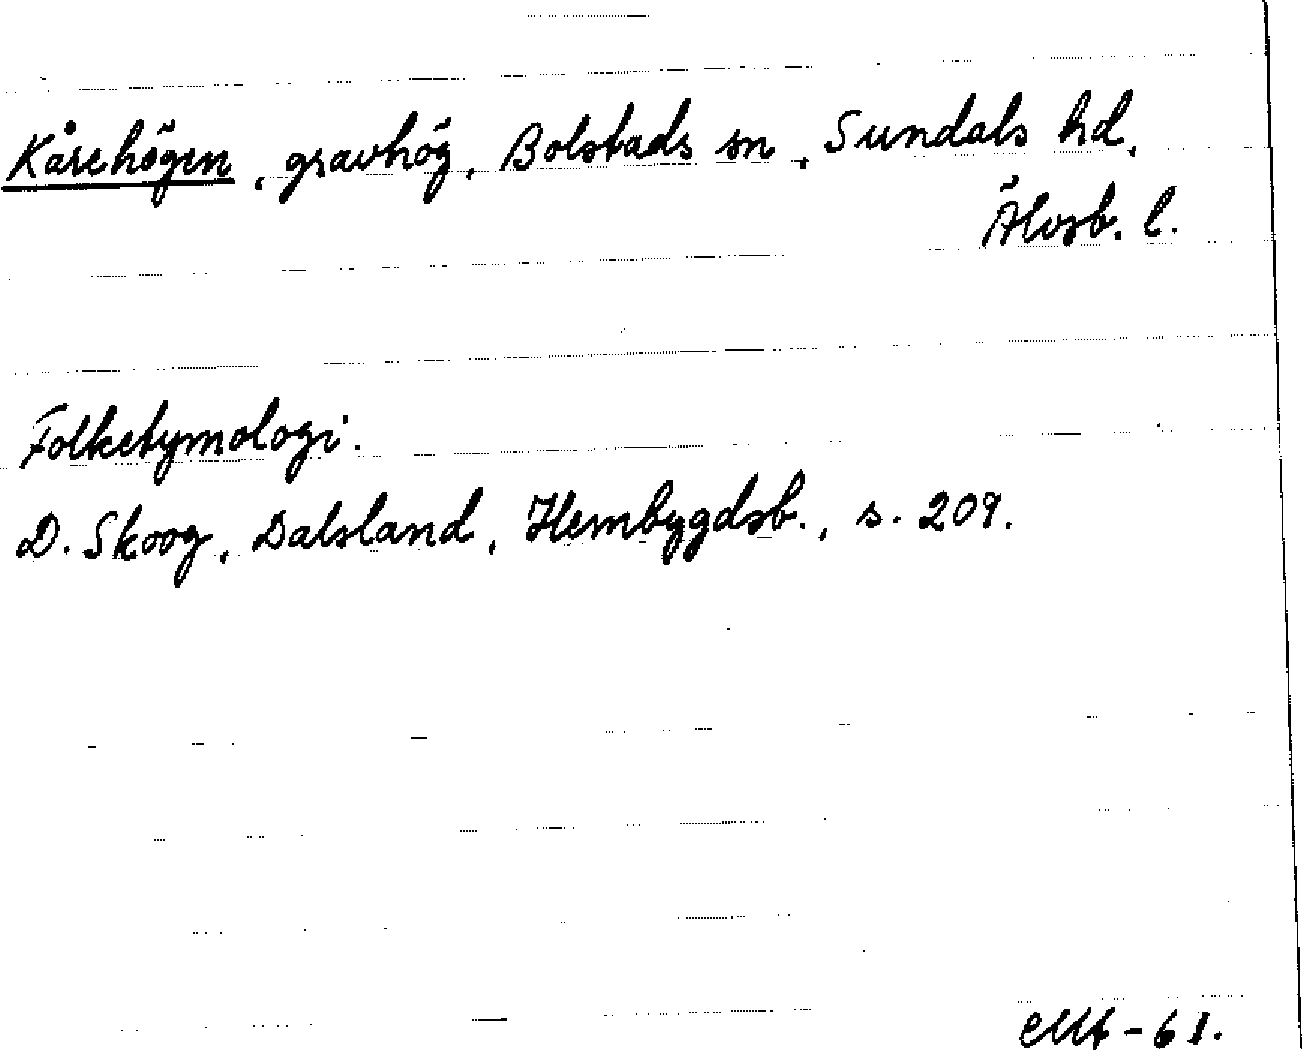 Kårehögen, gravhög, Bolstads sn, Sundals hd,
Älvsb. l.
Folketymologi.
D. Skoog, Dalsland, Hembygdsb., s. 209.
-61.